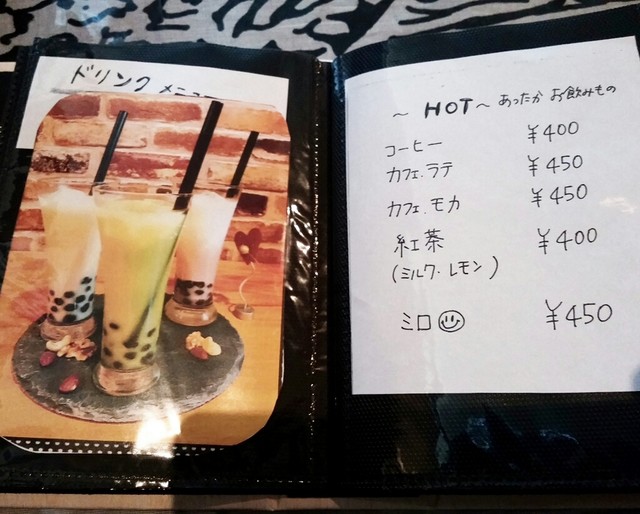 ドリンク メニュー
～ HOT ～ あったか お飲みもの
コーヒー ¥400
カフェ・ラテ ¥450
カフェ・モカ ¥450
紅茶 ¥400
(ミルク・レモン)
ミロ ¥450